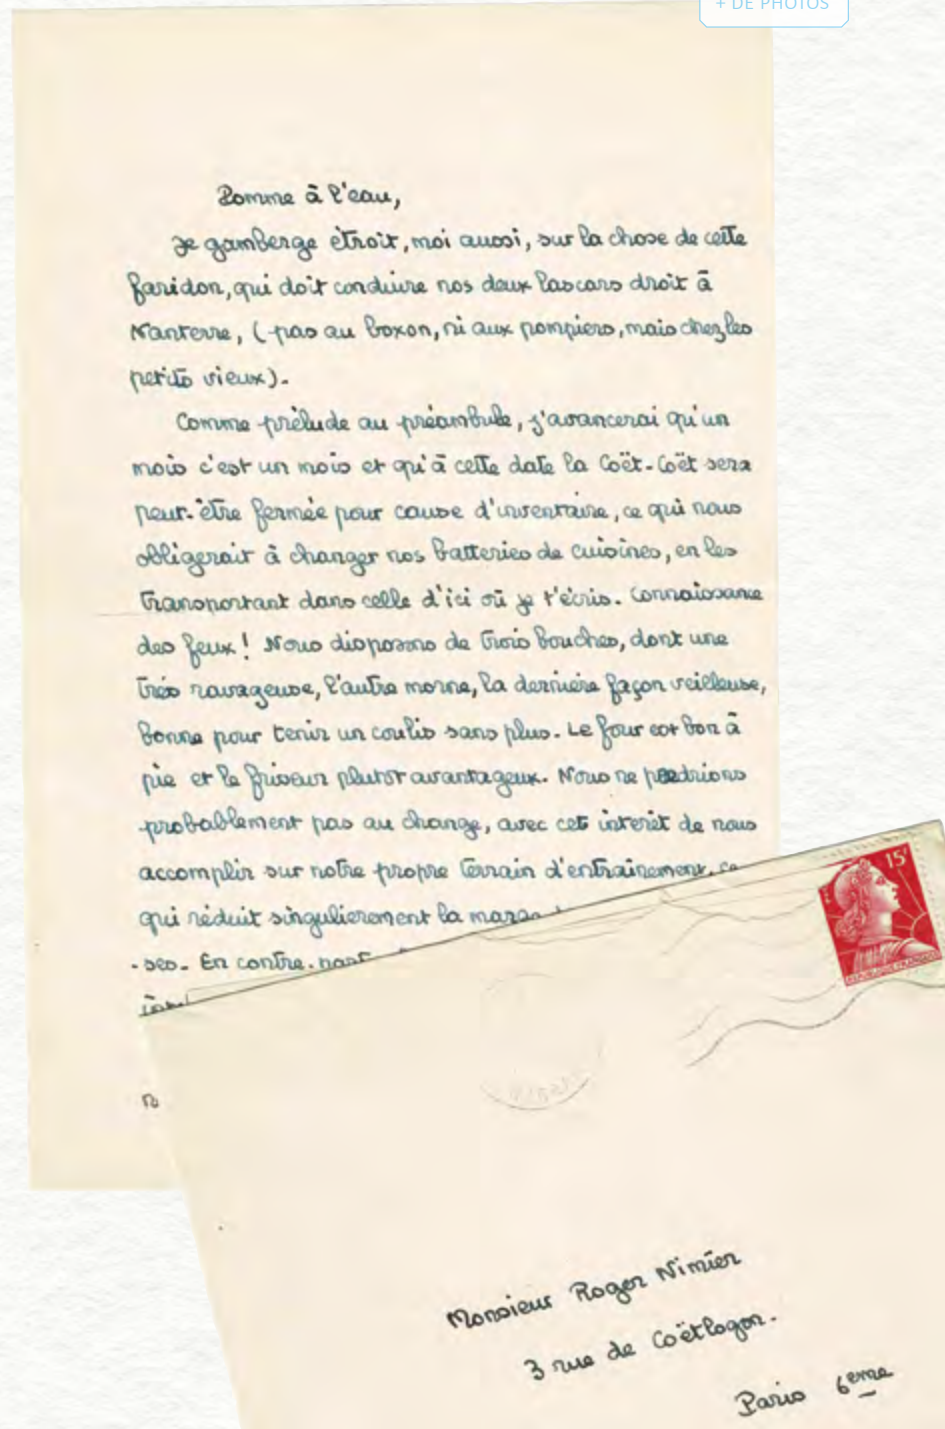 + DE PHOTOS
Pomme à l'eau,
Je gamberge étroit, moi aussi, sur la chose de cette
faridon, qui doit conduire nos deux lascars droit à
Nanterre, (pas au boxon, ni aux pompiers, mais chez les
petits vieux).
Comme prélude au préambule, j'avancerai qu'un
mois c'est un mois et qu'à cette date la Coët-Coët sera
peut-être fermée pour cause d'inventaire, ce qui nous
obligerait à changer nos batteries de cuisines, en les
transportant dans celle d'ici où je t'écris. Connaissance
des feux! Nous disposons de trois bouches, dont une
très ravageuse, l'autre morne, la dernière façon veilleuse,
bonne pour tenir un coulis sans plus. Le four est bon à
pie et le friseur plutôt avantageux. Nous ne perdrions
probablement pas au change, avec cet interêt de nous
accomplir sur notre propre terrain d'entraînement, ce
qui réduit singulièrement la
-ses. En contre-part
15F
REPUBLIQUE FRANCAISE
Monsieur Roger Nimier
3 rue de Coëtlogon.
Paris 6eme